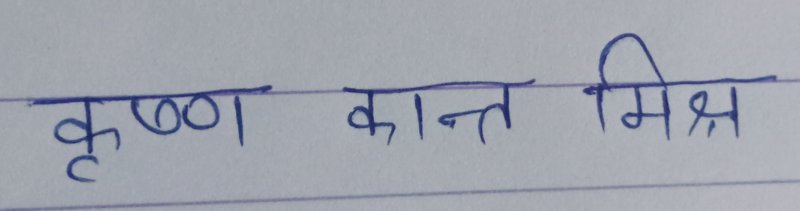 कृष्ण कान्त मिश्र